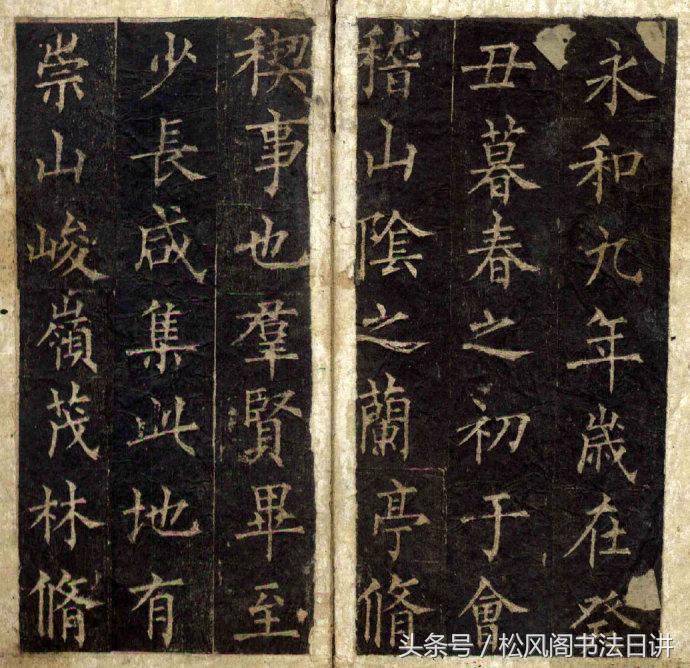 永和九年歲在癸
丑暮春之初于會
稽山陰之蘭亭脩
稧事也羣賢畢至
少長咸集此地有
崇山峻嶺茂林脩
头条号/松风阁书法日讲